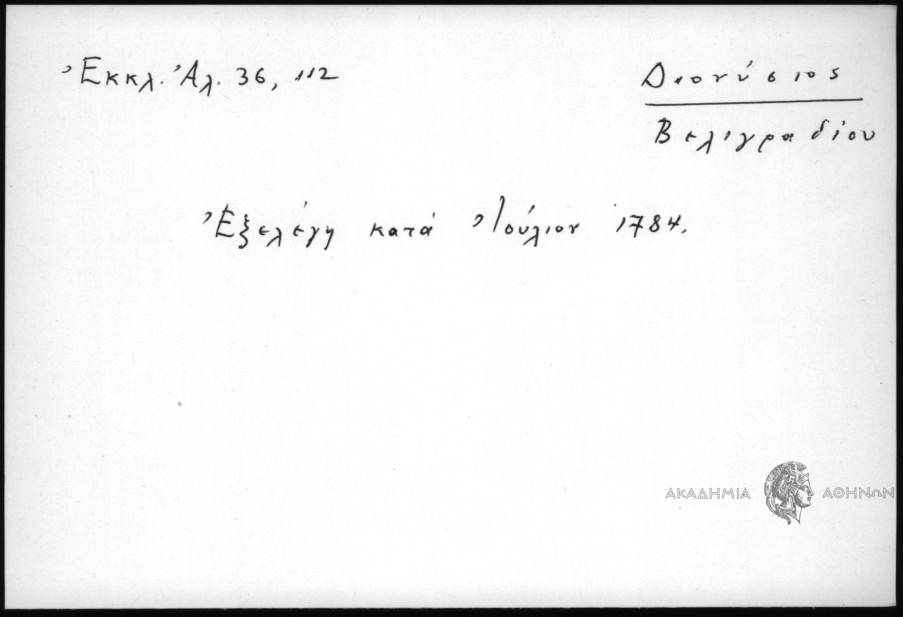 Ἐκκλ. Ἀλ. 36, 112
Διονύσιος
Βελιγραδίου
Ἐξελέγη κατά Ἰούλιον 1784.
ΑΚΑΔΗΜΙΑ ΑΘΗΝΩΝ